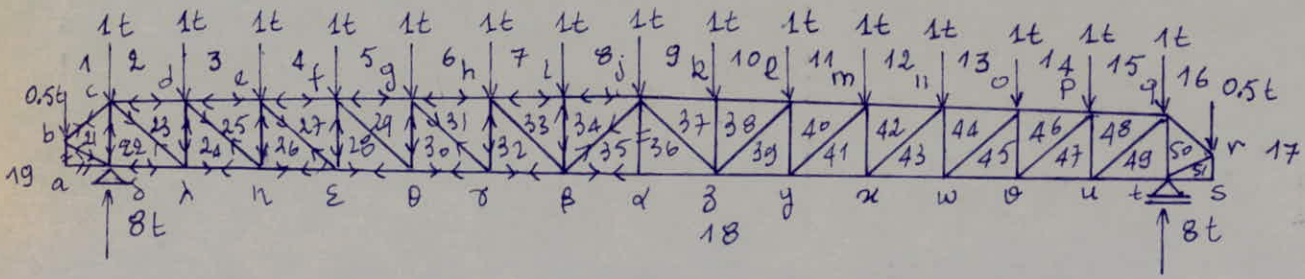 1t 1t 1t 1t 1t 1t 1t 1t 1t 1t 1t 1t 1t 1t 1t
1 2 3 4 5 6 7 8 9 10 11 12 13 14 15 16
0.5t c d e f g h i j k l m n o p q 0.5t
b 21 22 23 24 25 26 27 28 29 30 31 32 33 34 35 36 37 38 39 40 41 42 43 44 45 46 47 48 49 50 51 r 17
19 a δ λ η ε θ γ β α z y x w v u t s
8t 18 8t